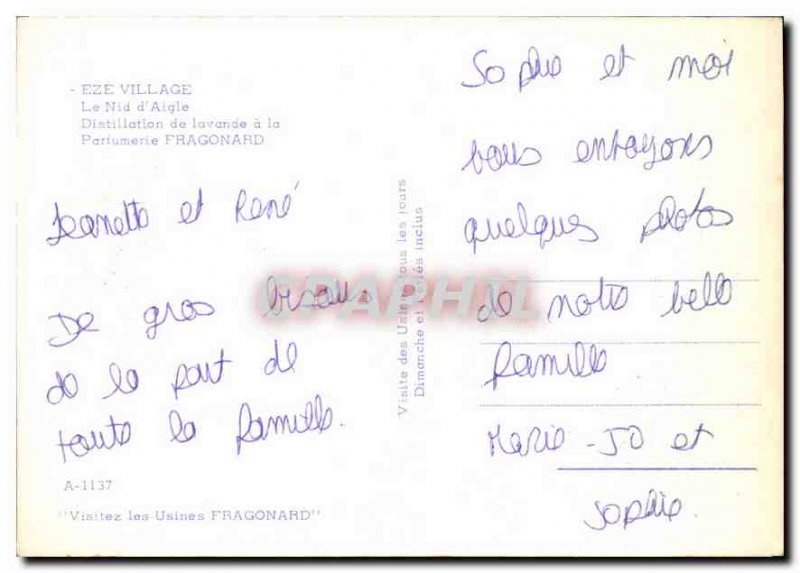 - EZE VILLAGE
Le Nid d'Aigle
Distillation de lavande à la
Parfumerie FRAGONARD
Jeannette et René
De gros bisous
de la part de
toute la famille.
A-1137
"Visitez les Usines FRAGONARD"
Visite des Usines tous les jours
Dimanche et Fériés inclus
CPAPHIL
Sophie et moi
vous envoyons
quelques photos
de notre belle
famille
Marie-Jo et
Sophie.